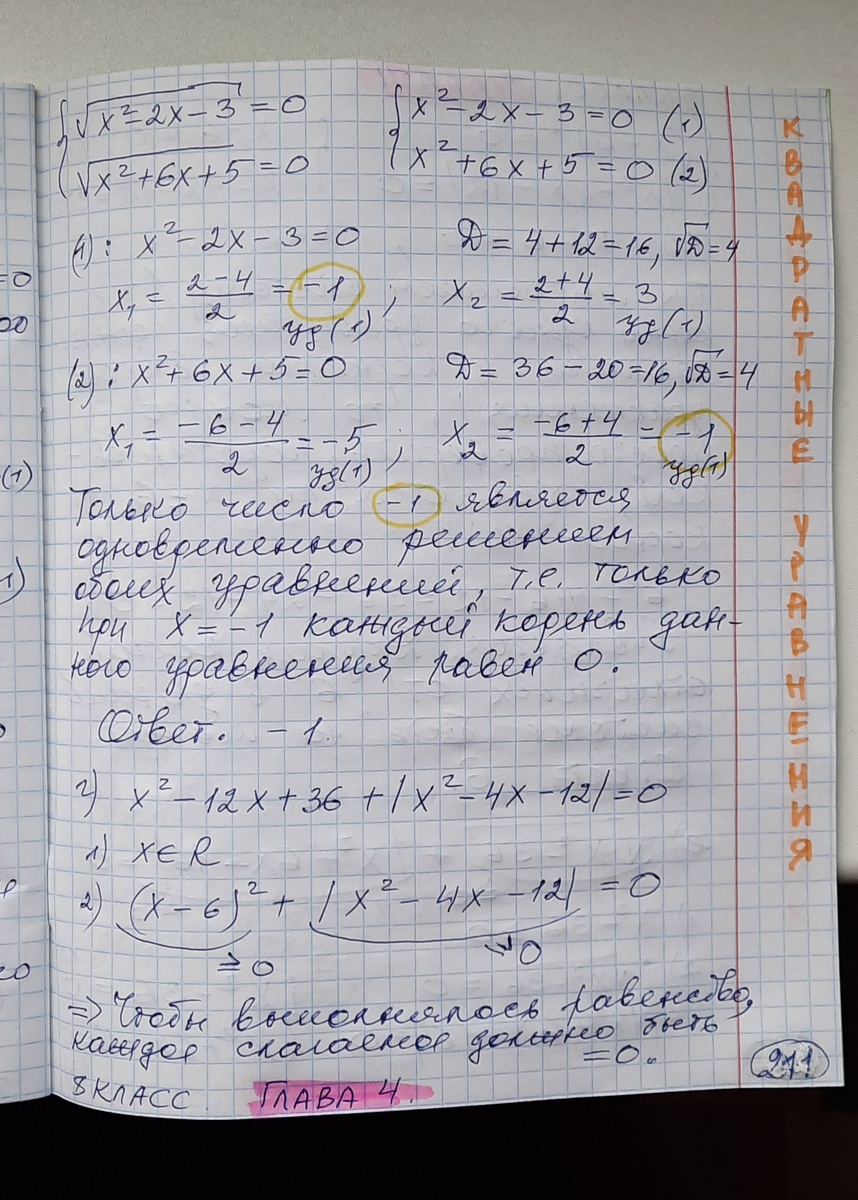 {√x²-2x-3 = 0 {x²-2x-3=0 (1)
{√x²+6x+5 = 0 {x²+6x+5=0 (2)
(1): x²-2x-3=0 D=4+12=16, √D=4
x₁ = (2-4)/2 = -1 ; x₂ = (2+4)/2 = 3
уд(1) уд(1)
(2): x²+6x+5=0 D=36-20=16, √D=4
x₁ = (-6-4)/2 = -5 ; x₂ = (-6+4)/2 = -1
уд(1) уд(1)
Только число -1 является
одновременно решением
обоих уравнений, т.е. только
при x=-1 каждый корень дан-
ного уравнения равен 0.
Ответ. -1.
г) x²-12x+36+|x²-4x-12|=0
1) x∈R
2) (x-6)²+|x²-4x-12|=0
≥0 ≥0
=> Чтобы выполнялось равенство,
каждое слагаемое должно быть
=0.
8 КЛАСС. ГЛАВА 4.
КВАДРАТНЫЕ УРАВНЕНИЯ
211
=0
(1)
1)